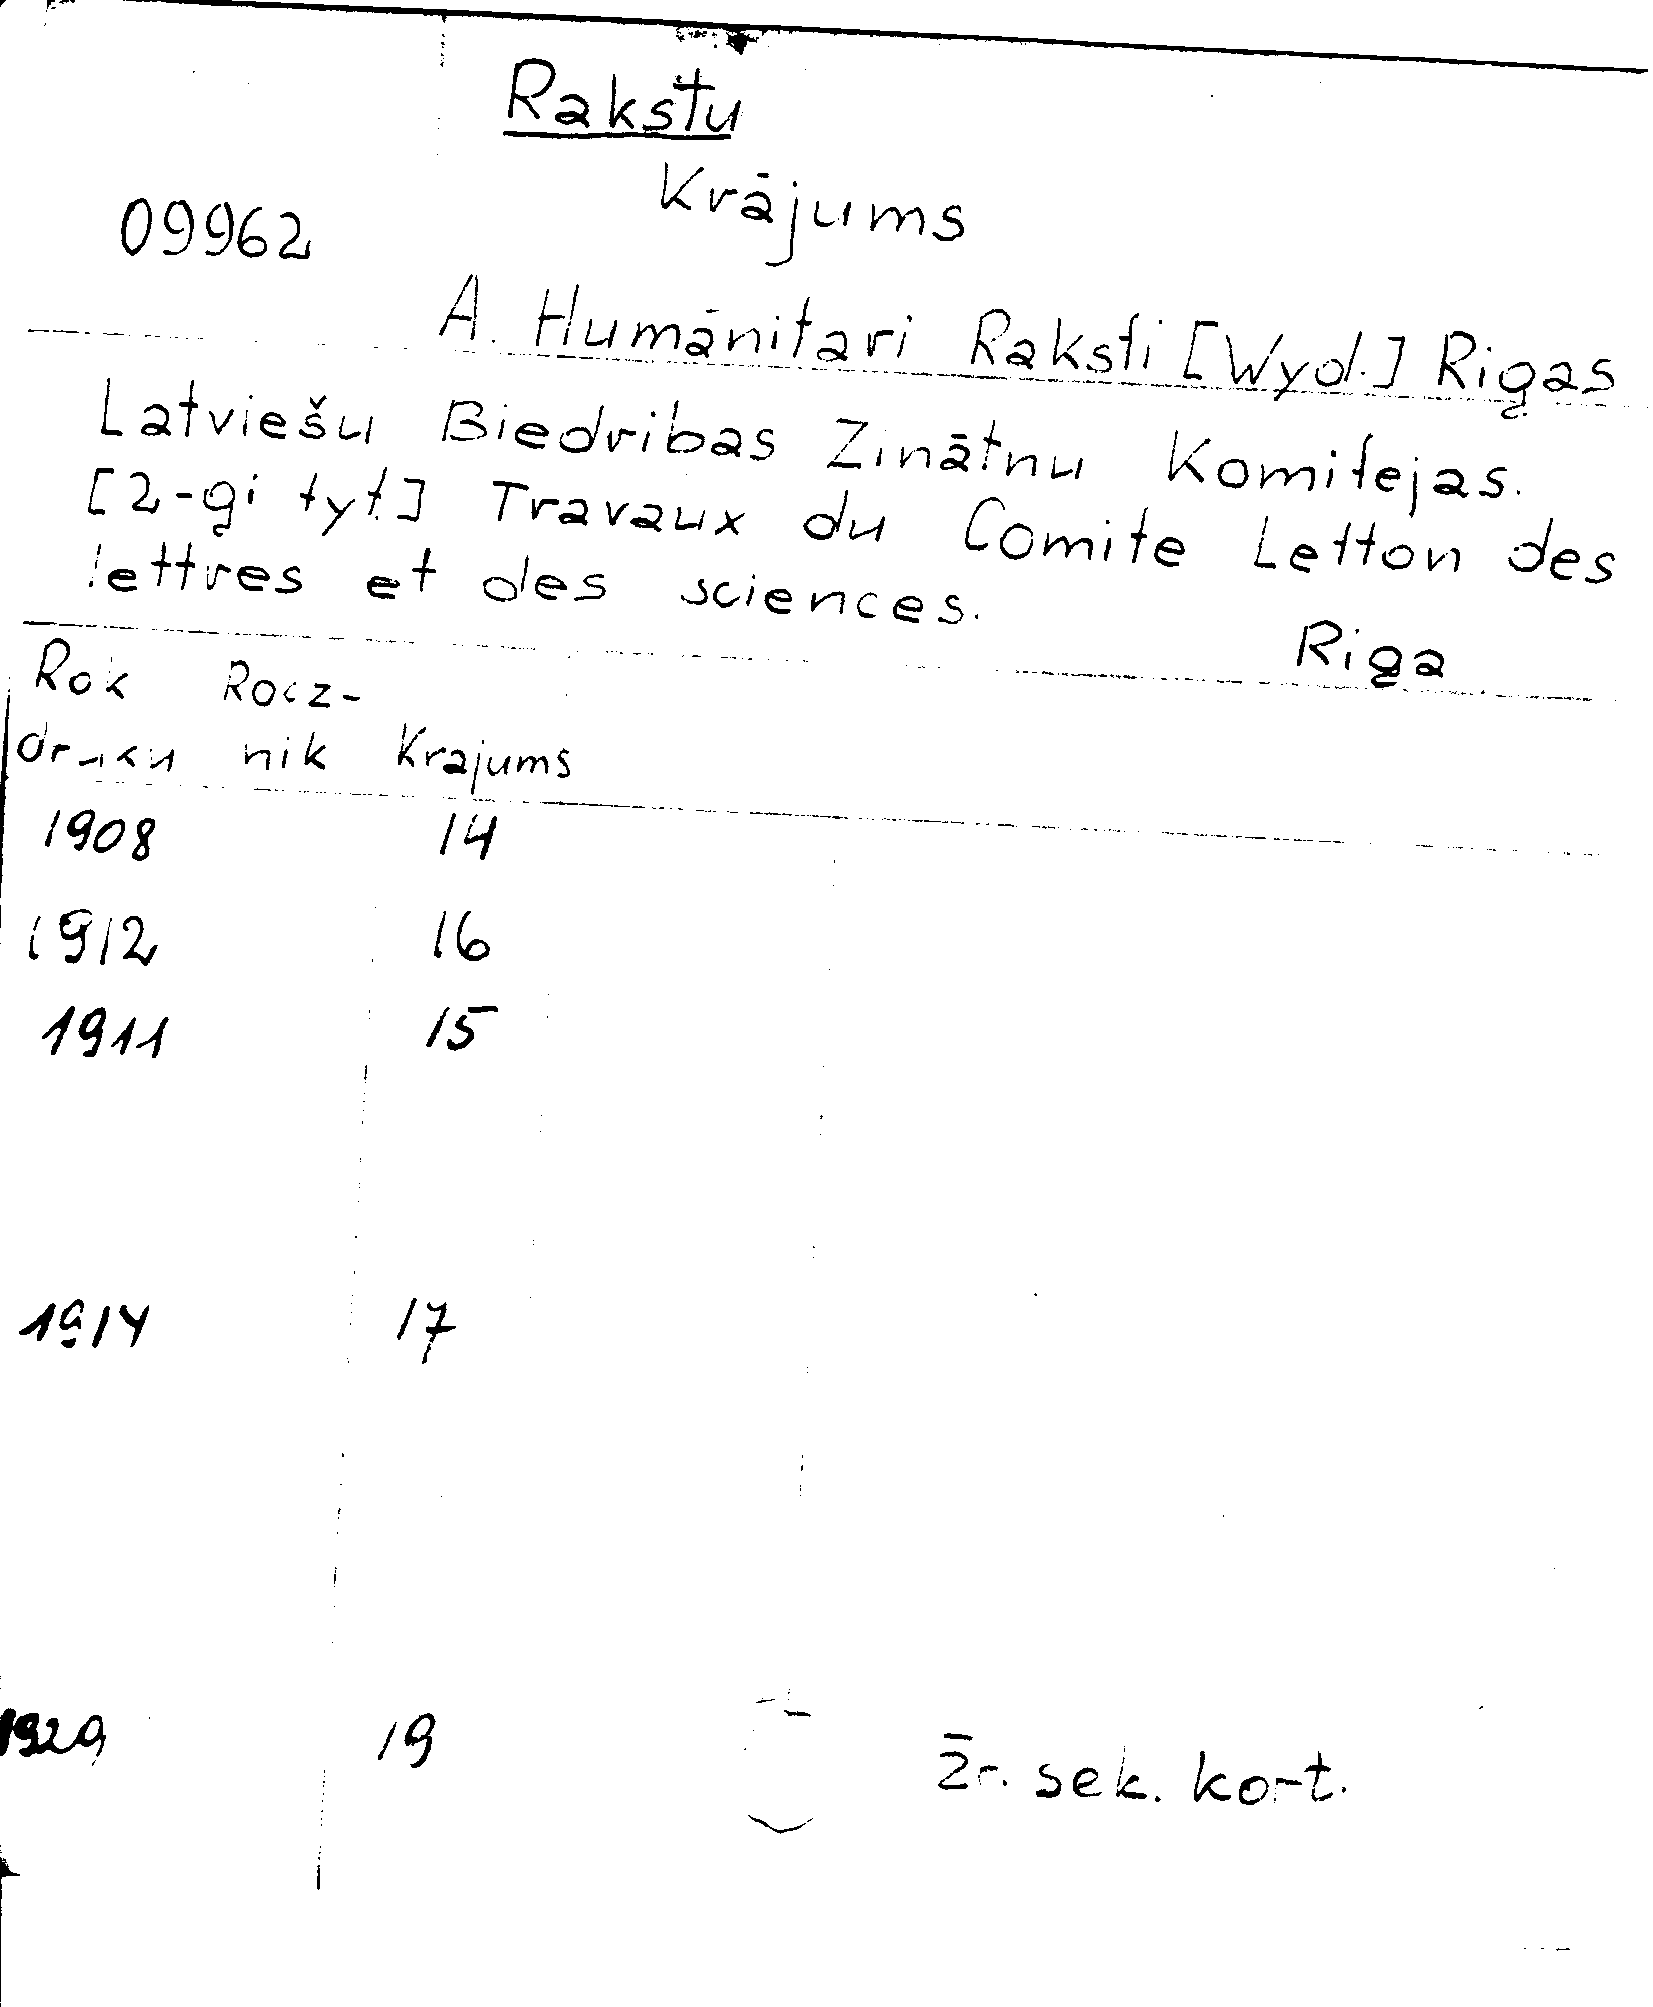 Rakstu
Krājums
09962
A. Humānitari Raksti [Wyd.] Rigas
Latviešu Biedribas Zinātnu Komitejas.
[2-gi tyt.] Travaux du Comite Letton des
lettres et des sciences.
Riga
Rok Rocz-
druku nik Krajums
1908 14
1912 16
1911 15
1914 17
1929 19
Zr. sek. kort.